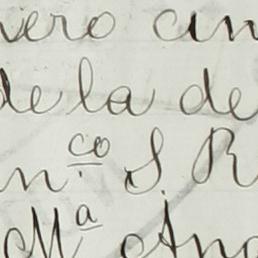 vero an
de la de
n.co S R
Ma An